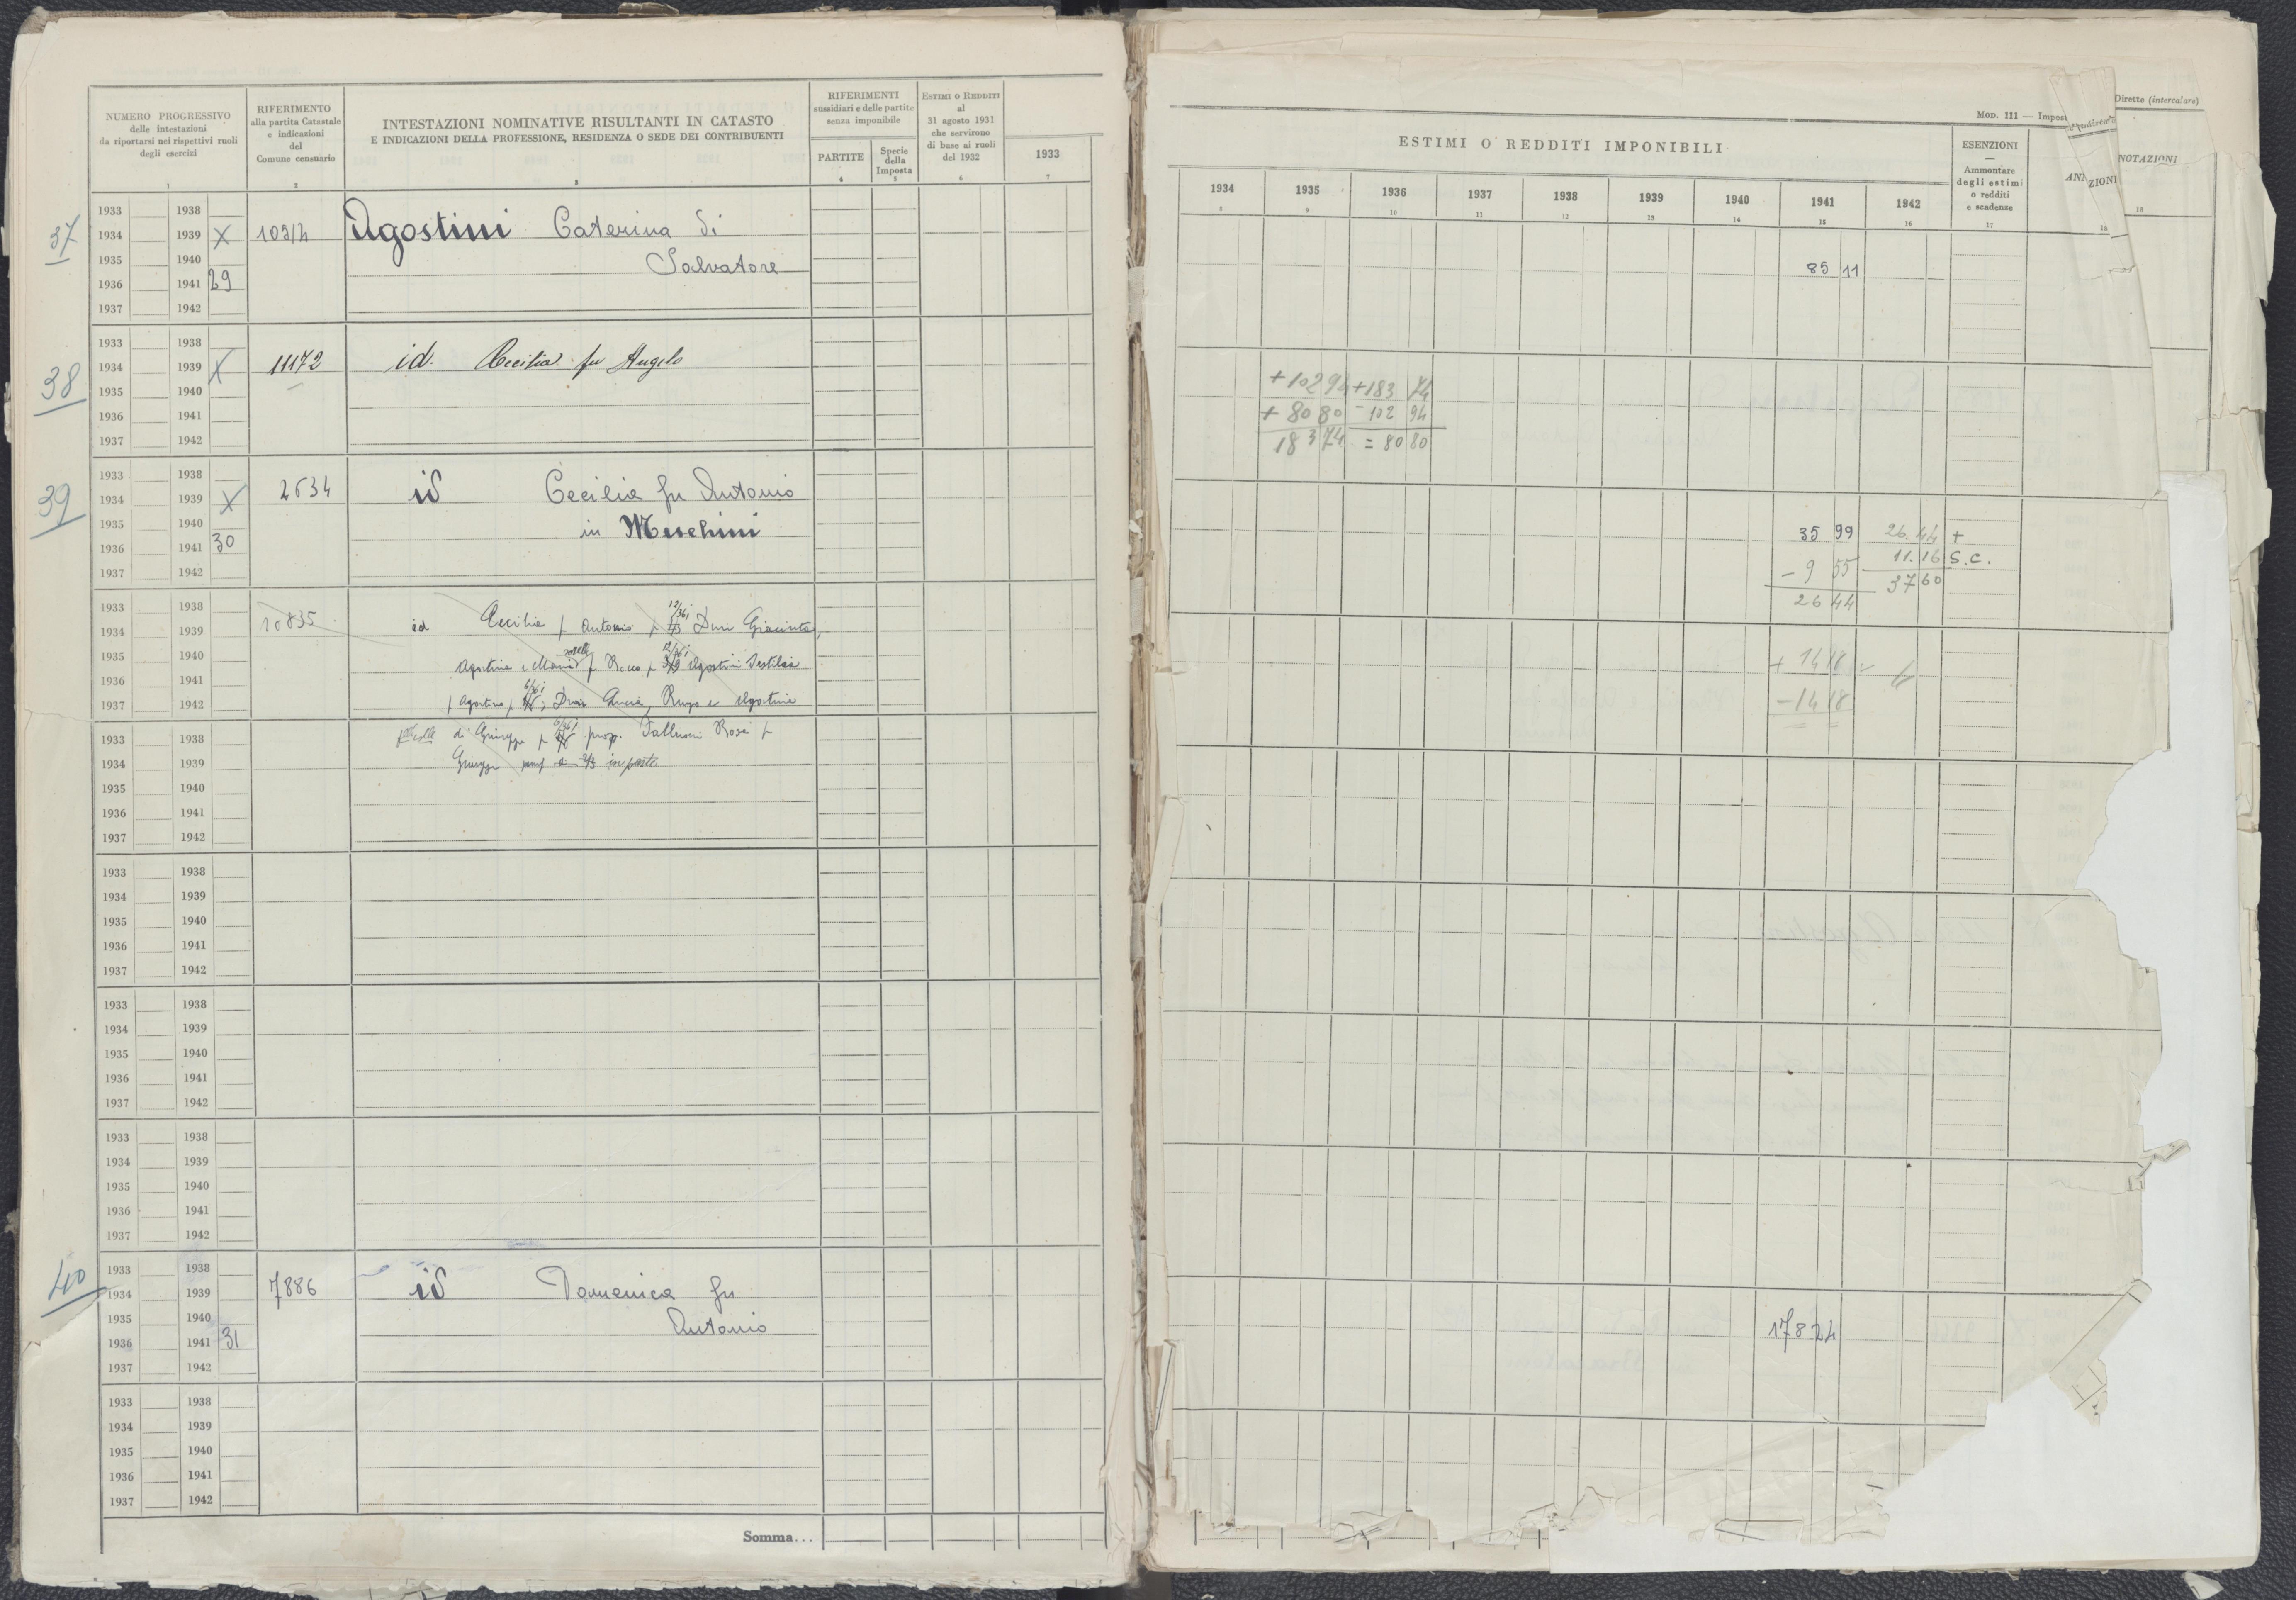 NUMERO PROGRESSIVO
delle intestazioni
da riportarsi nei rispettivi ruoli
degli esercizi
1
RIFERIMENTO
alla partita Catastale
e indicazioni
del
Comune censuario
2
INTESTAZIONI NOMINATIVE RISULTANTI IN CATASTO
E INDICAZIONI DELLA PROFESSIONE, RESIDENZA O SEDE DEI CONTRIBUENTI
3
RIFERIMENTI
sussidiari e delle partite
senza imponibile
PARTITE
4
Specie
della
Imposta
5
ESTIMI O REDDITI
al
31 agosto 1931
che servirono
di base ai ruoli
del 1932
6
1933
7
37
1933 1938
1934 1939 X 10314 Agostini Caterina di
1935 1940 Salvatore
1936 1941 29
1937 1942
38
1933 1938
1934 1939 X 11172 id. Cecilia fu Angelo
1935 1940
1936 1941
1937 1942
39
1933 1938
1934 1939 X 2634 id Cecilia fu Antonio
1935 1940 in Meschini
1936 1941 30
1937 1942
1933 1938
1934 1939 10835 id Cecilia f Antonio Giacinta
1935 1940 Agostini
1936 1941
1937 1942 f Agostino
1933 1938 di Giuseppe prop. Rosa f
1934 1939 Giuseppe in parte
1935 1940
1936 1941
1937 1942
1933 1938
1934 1939
1935 1940
1936 1941
1937 1942
1933 1938
1934 1939
1935 1940
1936 1941
1937 1942
1933 1938
1934 1939
1935 1940
1936 1941
1937 1942
40
1933 1938
1934 1939 7886 id Domenica fu
1935 1940 Antonio
1936 1941 31
1937 1942
1933 1938
1934 1939
1935 1940
1936 1941
1937 1942
Somma...
MOD. III — Impost
Dirette (intercalare)
ESTIMI O REDDITI IMPONIBILI
1934 1935 1936 1937 1938 1939 1940 1941 1942
8 9 10 11 12 13 14 15 16
ESENZIONI
—
Ammontare
degli estimi
o redditi
e scadenze
17
ANN
ZIONI
NOTAZIONI
18
18
85 11
+102 94 +183 74
+ 80 80 - 102 94
183 74 = 80 80
35 99 26.44 +
- 9 55 11.16 S.C.
26 44 37 60
+ 14 18
- 14 18
178 24